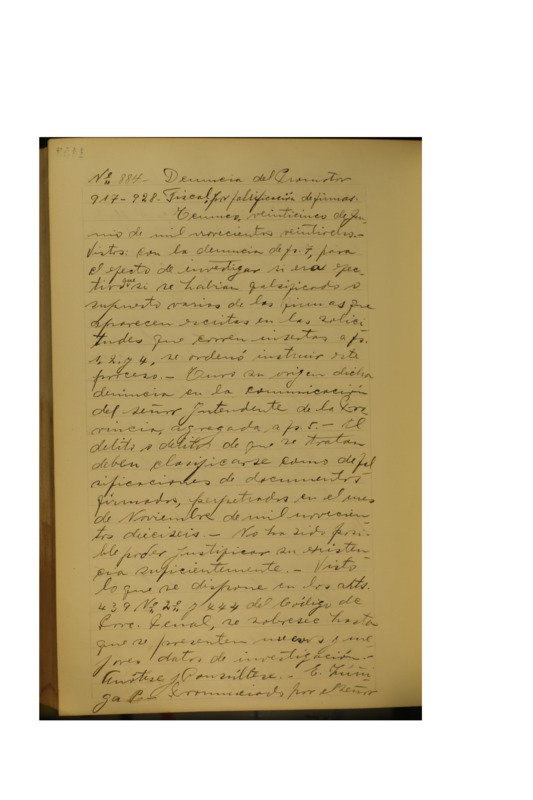 Nº 884.- Denuncia del Promotor
917-928. Fiscal, por falsificación de firmas.
Temuco, veinticinco de Ju-
nio de mil novecientos veintiocho.-
Vistos: con la denuncia de fs. 7, para
el efecto de investigar si era efec-
tivo que si se habían falsificado o
supuesto varias de las firmas que
aparecen escritas en las solici-
tudes que corren insertas a fs.
1, 2 y 4, se ordenó instruir este
proceso.- Tuvo su origen dicha
denuncia en la comunicación
del señor Intendente de la Pro-
vincia, agregada a fs. 5.- El
delito o delitos de que se tratan
deben clasificarse como de fal
sificaciones de documentos
firmados, perpetrados en el mes
de Noviembre de mil novecien-
tos dieciseis.- No ha sido posi-
ble poder justificar su existen-
cia suficientemente.- Visto
lo que se dispone en los arts.
439 Nº 2º y 444 del Código de
Proc. Penal, se sobresee hasta
que se presenten nuevos o me-
jores datos de investigación.-
Anótese y Consúltese.- E. Zúñi-
ga P.- Pronunciado por el señor